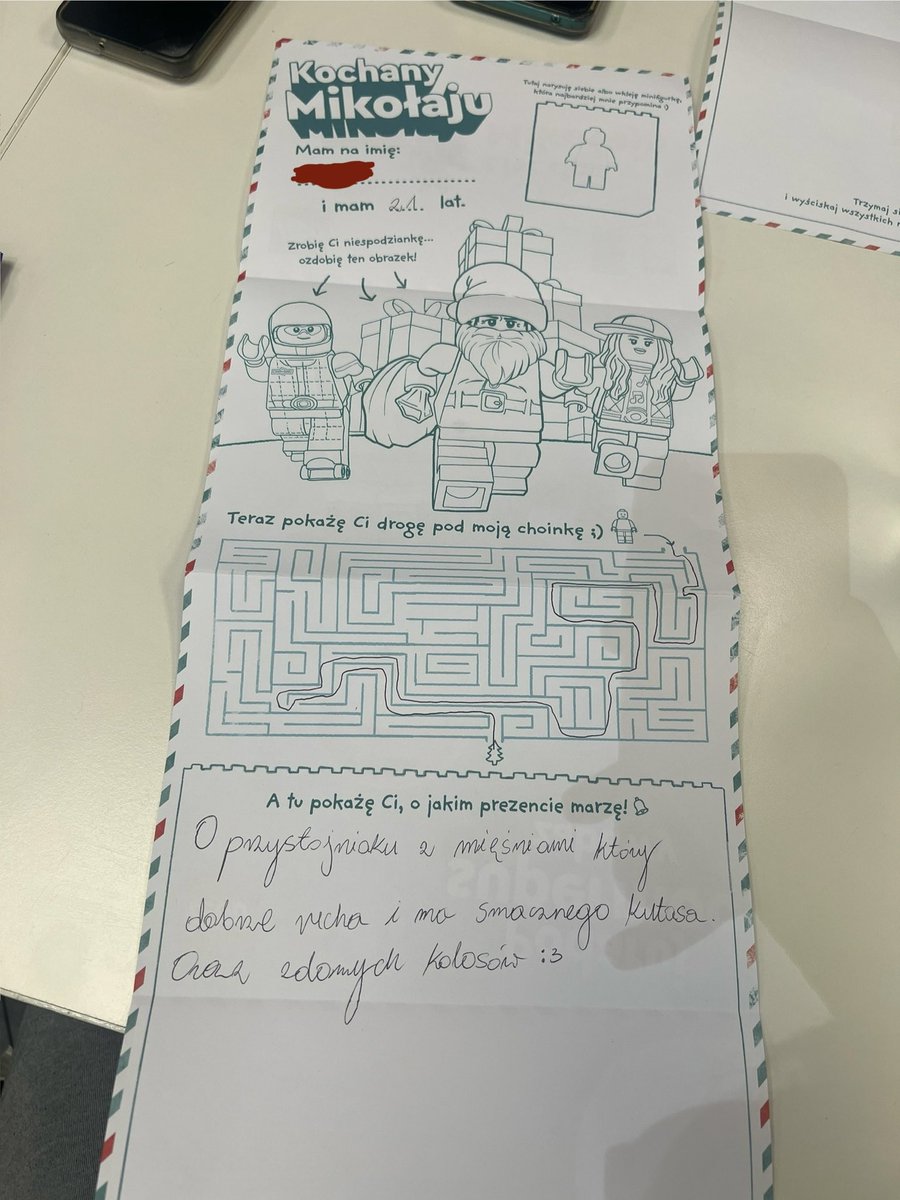 Kochany
Mikołaju
Tutaj narysuję siebie albo wkleję minifigurkę,
która najbardziej mnie przypomina :)
Mam na imię:
i mam 21. lat.
Zrobię Ci niespodziankę...
ozdobię ten obrazek!
Trzymaj si
i wyściskaj wszystkich r
Teraz pokażę Ci drogę pod moją choinkę ;)
A tu pokażę Ci, o jakim prezencie marzę!
O przystojniaku z mięśniami który
dobrze rucha i ma smacznego kutasa.
Oraz zdanych kolosów :3